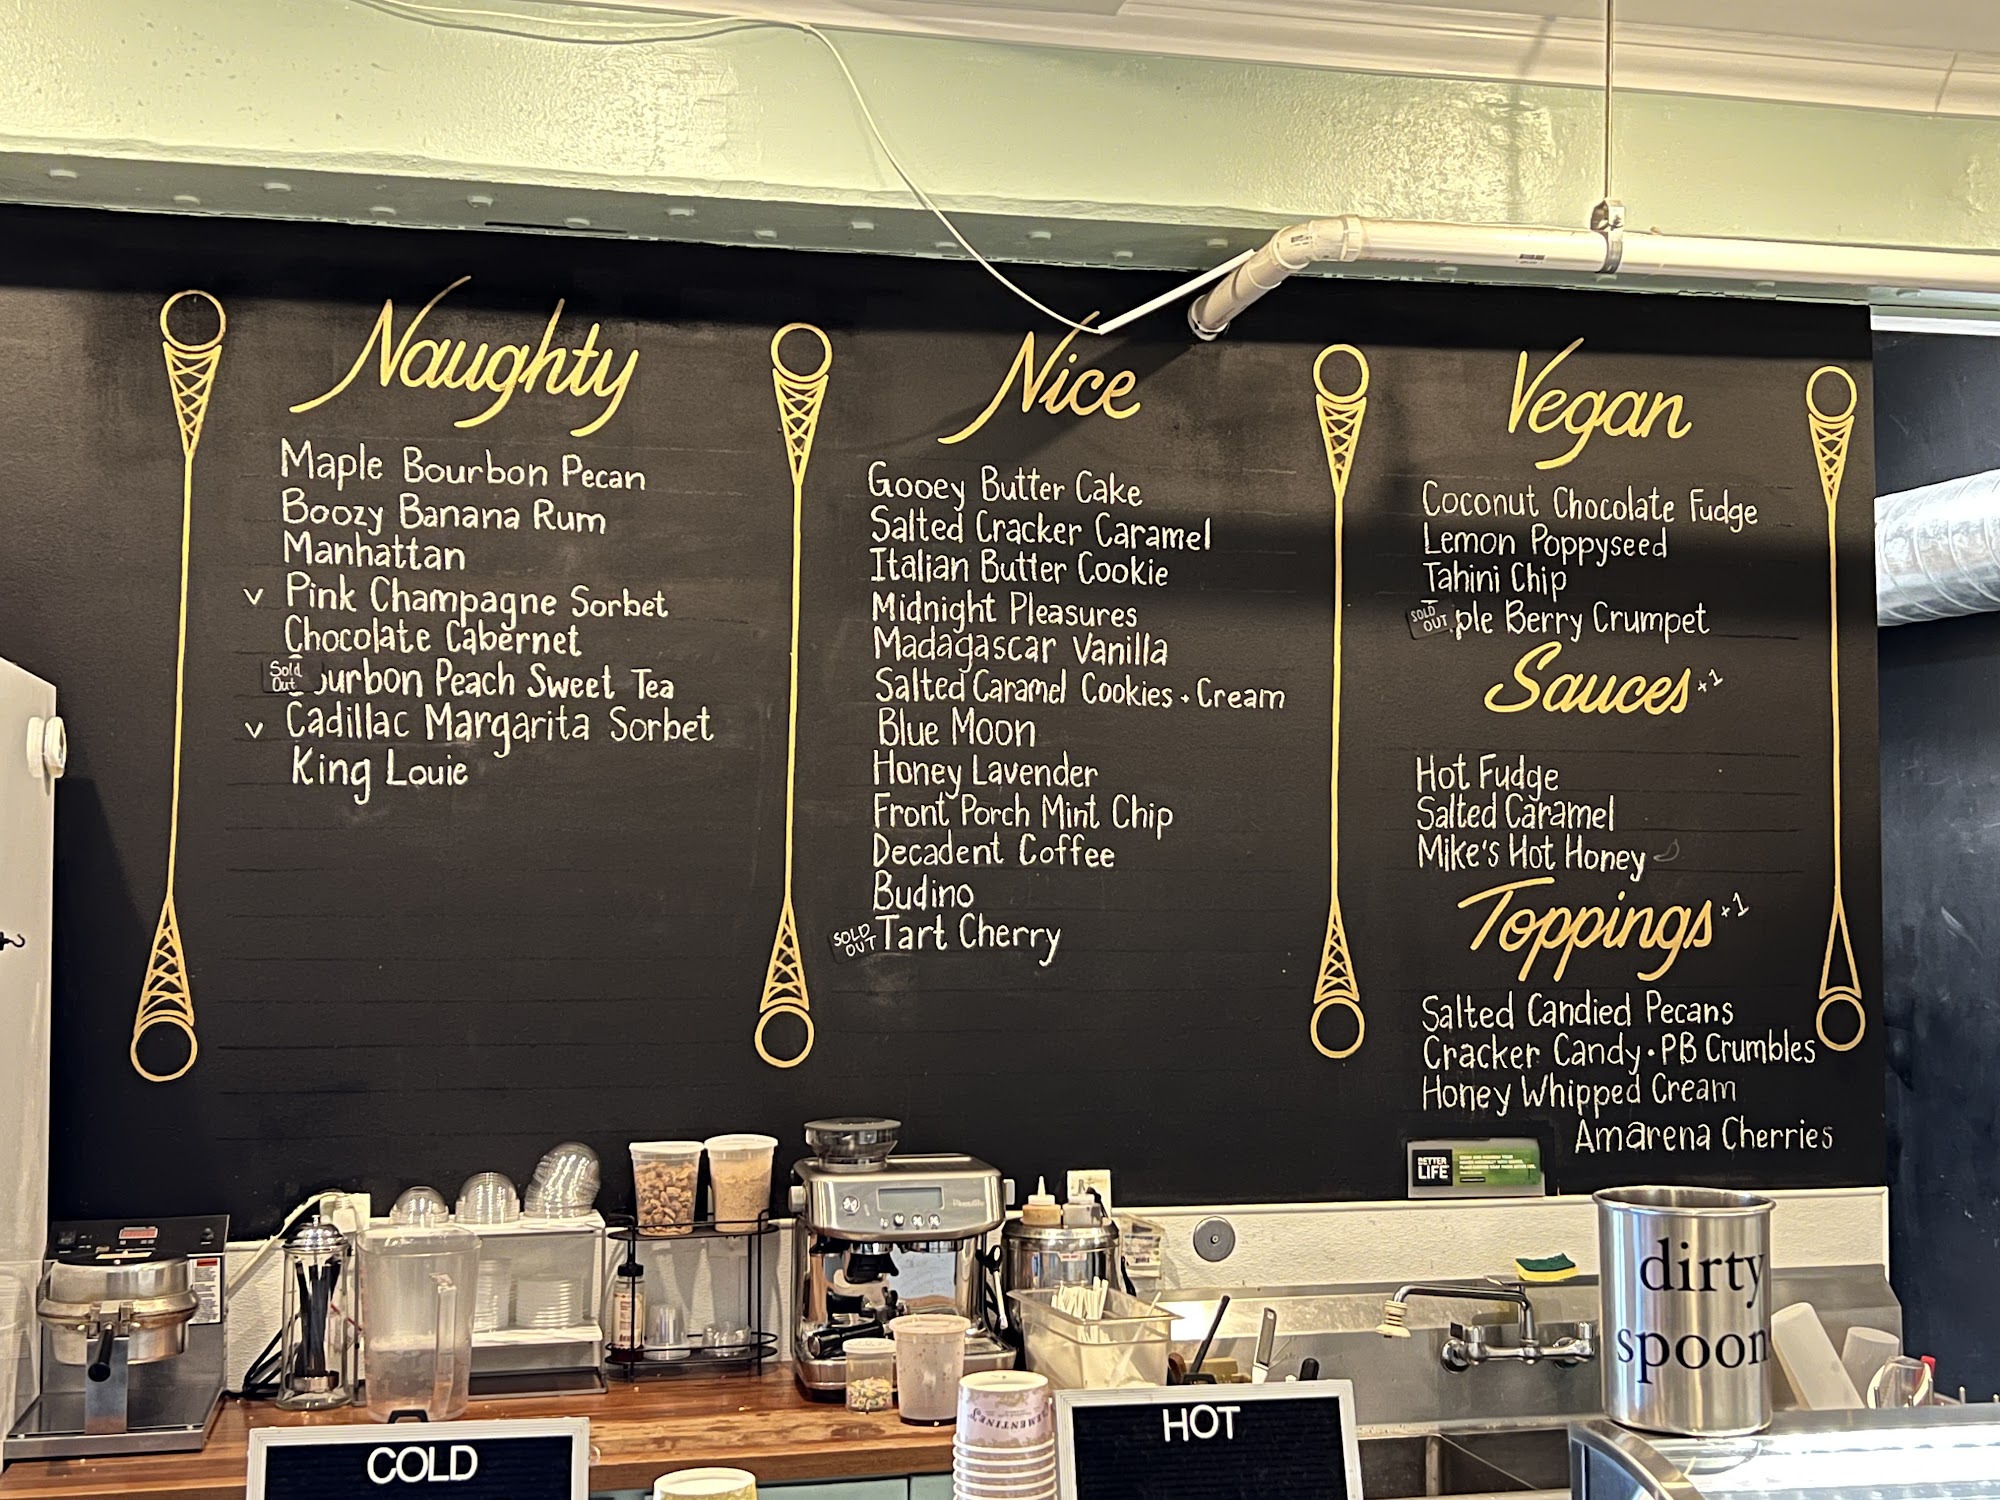 Naughty
Maple Bourbon Pecan
Boozy Banana Rum
Manhattan
v Pink Champagne Sorbet
Chocolate Cabernet
Sold Out
ourbon Peach Sweet Tea
v Cadillac Margarita Sorbet
King Louie
Nice
Gooey Butter Cake
Salted Cracker Caramel
Italian Butter Cookie
Midnight Pleasures
Madagascar Vanilla
Salted Caramel Cookies + Cream
Blue Moon
Honey Lavender
Front Porch Mint Chip
Decadent Coffee
Budino
SOLD OUT
Tart Cherry
Vegan
Coconut Chocolate Fudge
Lemon Poppyseed
Tahini Chip
SOLD OUT
ple Berry Crumpet
Sauces +1
Hot Fudge
Salted Caramel
Mike's Hot Honey
Toppings +1
Salted Candied Pecans
Cracker Candy · PB Crumbles
Honey Whipped Cream
Amarena Cherries
BETTER
LIFE
dirty
spoon
CLEMENTINE'S
COLD
HOT